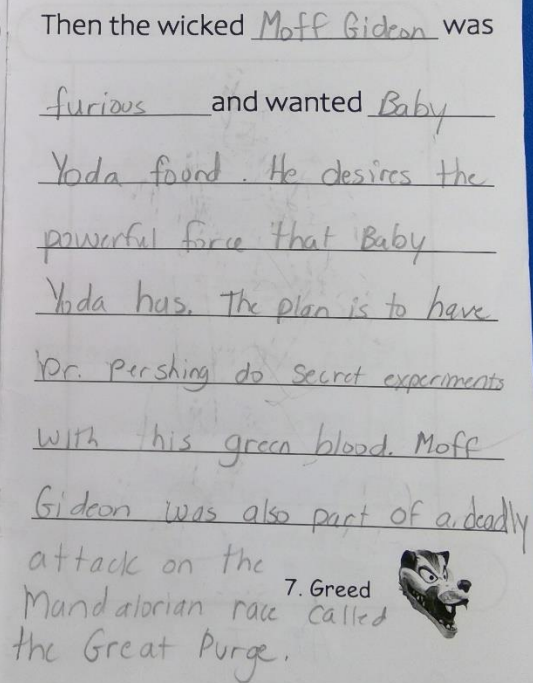 Then the wicked Moff Gideon was
furious and wanted Baby
Yoda found. He desires the
powerful force that Baby
Yoda has. The plan is to have
Dr. Pershing do secret experiments
with his green blood. Moff
Gideon was also part of a deadly
attack on the
7. Greed
Mandalorian race called
the Great Purge.